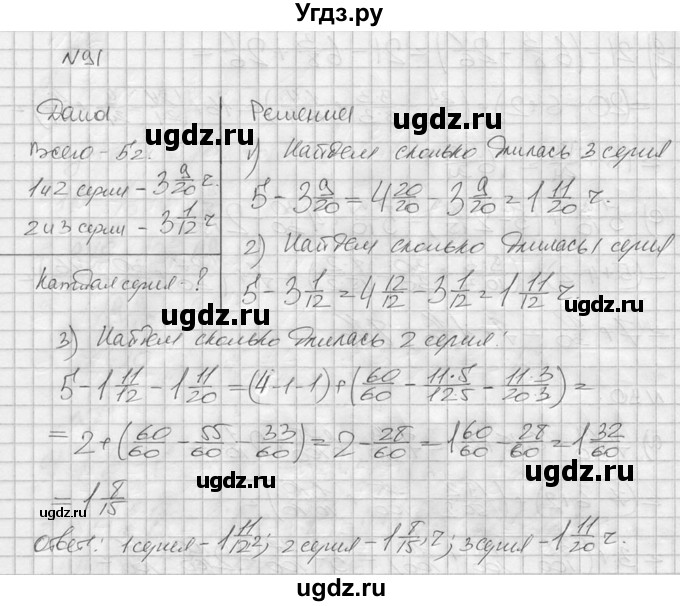 Угдз.ру
N91
Дано!
Всего - 5 ч.
1 и 2 серии - 3 9/20 ч.
2 и 3 серии - 3 1/12 ч
Каждая серия - ?
Решение
1) Найдем сколько длилась 3 серия
5 - 3 9/20 = 4 20/20 - 3 9/20 = 1 11/20 ч.
2) Найдем сколько длилась 1 серия
5 - 3 1/12 = 4 12/12 - 3 1/12 = 1 11/12 ч
3) Найдем сколько длилась 2 серия:
5 - 1 11/12 - 1 11/20 = (4-1-1) + (60/60 - 11·5/12·5 - 11·3/20·3) =
= 2 + (60/60 - 55/60 - 33/60) = 2 - 28/60 = 1 60/60 - 28/60 = 1 32/60
= 1 8/15
Ответ: 1 серия - 1 11/12 ч; 2 серия - 1 8/15 ч; 3 серия - 1 11/20 ч.
ugdz.ru
ugdz.ru
ugdz.ru
ugdz.ru
ugdz.ru
ugdz.ru
ugdz.ru
ugdz.ru
ugdz.ru
ugdz.ru
ugdz.ru